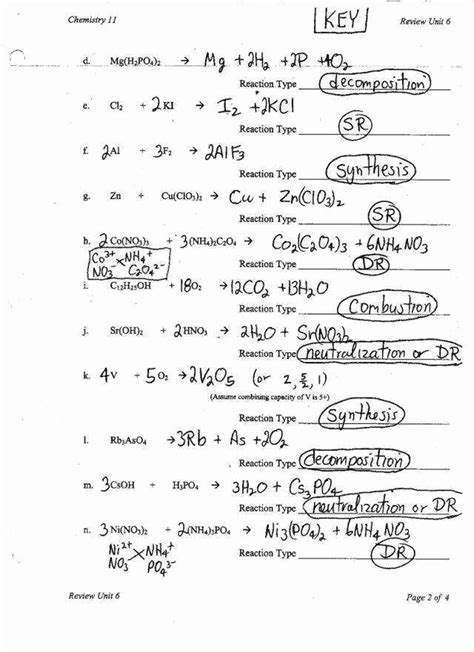 Chemistry 11 KEY Review Unit 6
d. Mg(H₂PO₄)₂ → Mg + 2H₂ + 2P + 4O₂
Reaction Type decomposition
e. Cl₂ + 2 KI → I₂ + 2KCl
Reaction Type SR
f. 2Al + 3F₂ → 2AlF₃
Reaction Type Synthesis
g. Zn + Cu(ClO₃)₂ → Cu + Zn(ClO₃)₂
Reaction Type SR
h. 2 Co(NO₃)₃ + 3(NH₄)₂C₂O₄ → Co₂(C₂O₄)₃ + 6NH₄NO₃
Co³⁺ NH₄⁺
NO₃⁻ C₂O₄²⁻
Reaction Type DR
i. C₁₂H₂₅OH + 18O₂ → 12CO₂ + 13H₂O
Reaction Type Combustion
j. Sr(OH)₂ + 2HNO₃ → 2H₂O + Sr(NO₃)₂
Reaction Type neutralization or DR
k. 4V + 5O₂ → 2V₂O₅ (or 2, 5/2, 1)
(Assume combining capacity of V is 5+)
Reaction Type Synthesis
l. Rb₃AsO₄ → 3Rb + As + 2O₂
Reaction Type decomposition
m. 3CsOH + H₃PO₄ → 3H₂O + Cs₃PO₄
Reaction Type neutralization or DR
n. 3 Ni(NO₃)₂ + 2(NH₄)₃PO₄ → Ni₃(PO₄)₂ + 6NH₄NO₃
Ni²⁺ NH₄⁺
NO₃⁻ PO₄³⁻
Reaction Type DR
Review Unit 6 Page 2 of 4